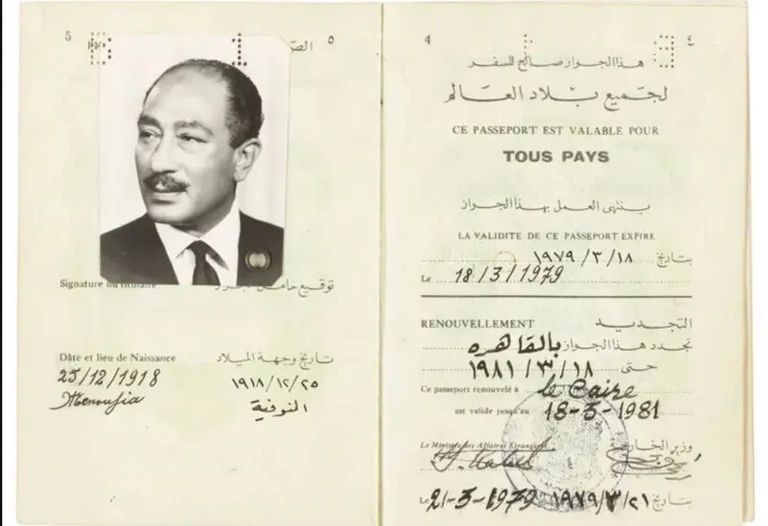 5
٥
Signature du titulaire
توقيع حامل الجواز
Dâte et lieu de Naissance
تاريخ وجهة الميلاد
25/12/1918
١٩١٨/١٢/٢٥
Menoufia
المنوفية
4
٤
هذا الجواز صالح للسفر
لجميع بلاد العالم
CE PASSEPORT EST VALABLE POUR
TOUS PAYS
ينتهى العمل بهذا الجواز
LA VALIDITE DE CE PASSEPORT EXPIRE
بتاريخ ١٩٧٩/٣/١٨
Le 18/3/1979
RENOUVELLEMENT
التجديد
تجدد هذا الجواز بالقاهره
حتى ١٩٨١/٣/١٨
Ce passeport renouvelé à le Caire
est valide jusqu'au 18-3-1981
Le Ministre des Affaires Etrangères
وزير الخارجية
Le 21-3-1979
بتاريخ ١٩٧٩/٣/٢١